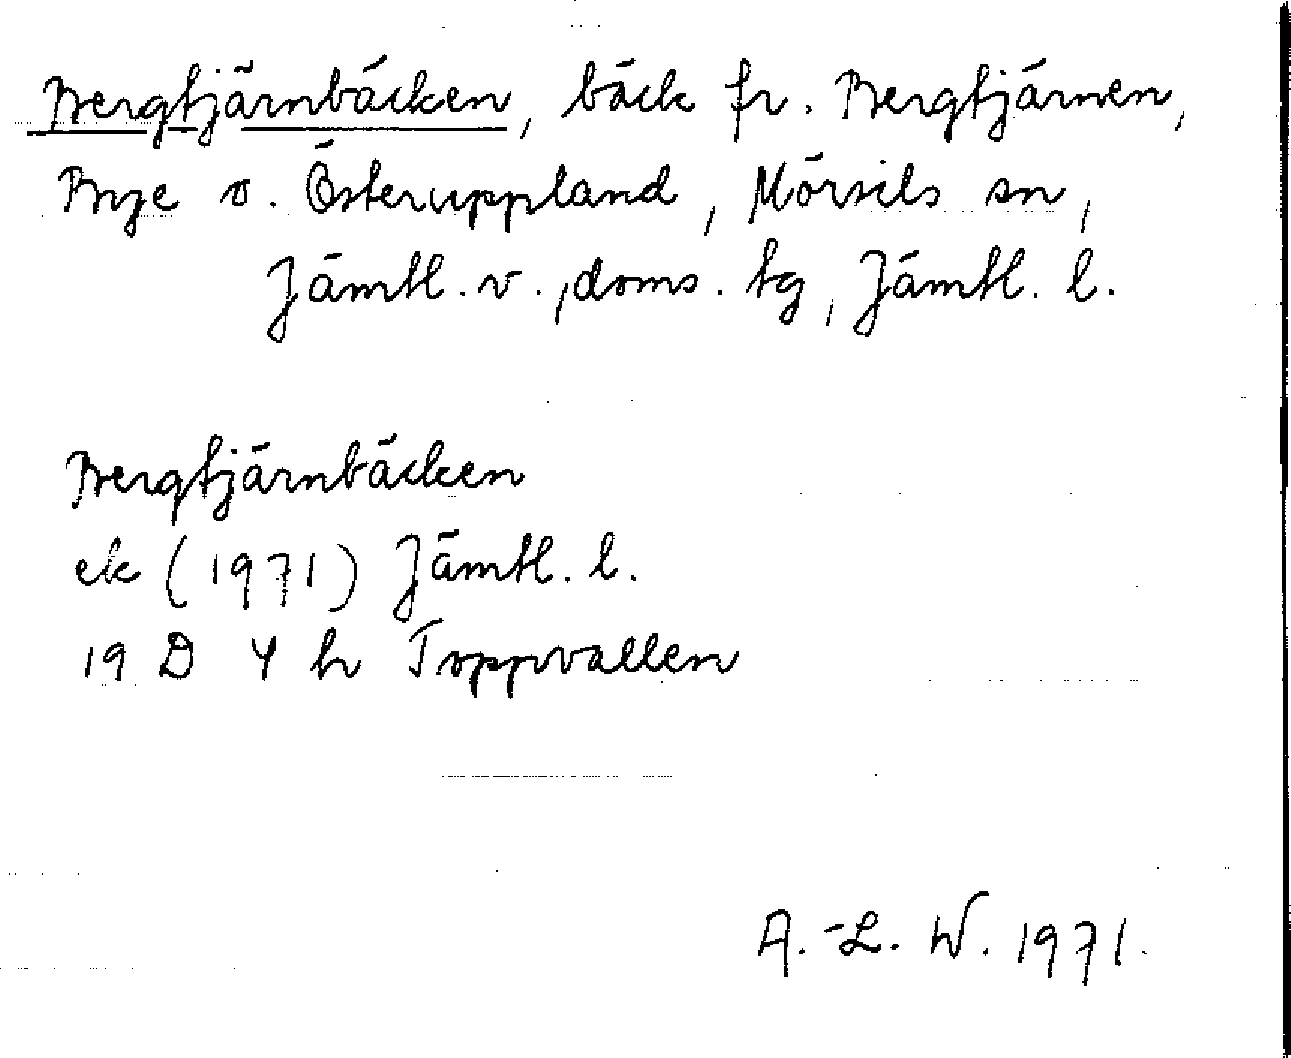 Bergtjärnbäcken, bäck fr. Bergtjärnen,
Bye o. Österuppland, Mörsils sn,
Jämtl. v., doms. tg, Jämtl. l.
Bergtjärnbäcken
ek (1971) Jämtl. l.
19 D 4 h Toppvallen
A.-L. W. 1971.